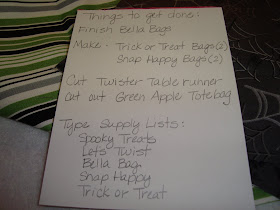 Things to get done:
Finish Bella Bags
Make - Trick or Treat Bags (2)
Snap Happy Bags (2)
Cut Twister Table runner
Cut out Green Apple Totebag
Type Supply Lists:
Spooky Treats
Lets Twist
Bella Bag
Snap Happy
Trick or Treat